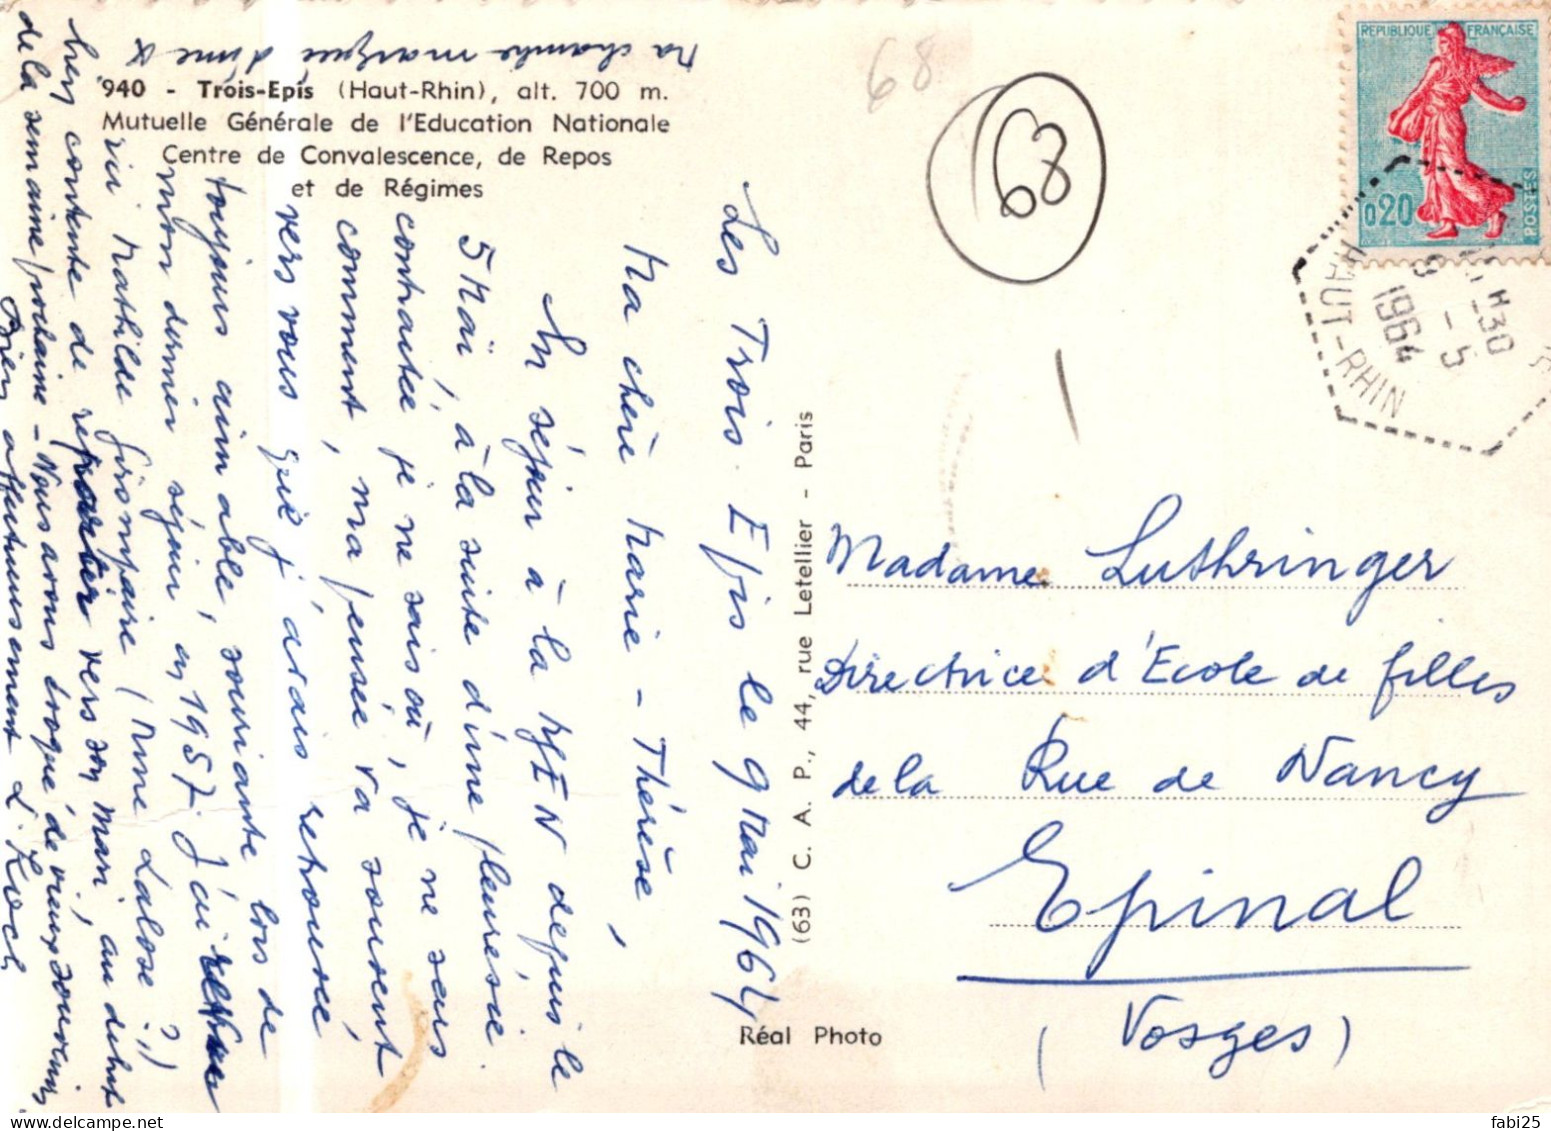 Ma chambre marquée d'une X
940 - Trois-Epis (Haut-Rhin), alt. 700 m.
Mutuelle Générale de l'Education Nationale
Centre de Convalescence, de Repos
et de Régimes
Les Trois Epis le 9 Mai 1964
Ma chère Marie-Thérèse,
En séjour à la MGEN depuis le
5 Mai, à la suite d'une pleurésie
contractée je ne sais où, je ne sais
comment, ma pensée va souvent
vers vous que j'avais retrouvée,
toujours aimable, souriante lors de
mon dernier séjour en 1957. J'ai
vu Mathilde (Mme Lalose ?)
très contente de repartir vers son mari, au début
de la semaine prochaine - Nous avons évoqué de vieux souvenirs
Bien affectueusement L. Koch
68
68
REPUBLIQUE FRANÇAISE
0,20
POSTES
H30
9 - 5
1964
HAUT-RHIN
(63) C. A. P., 44, rue Letellier - Paris
Madame Luthringer
Directrice d'Ecole de filles
de la Rue de Nancy
Epinal
(Vosges)
Réal Photo
fabi25